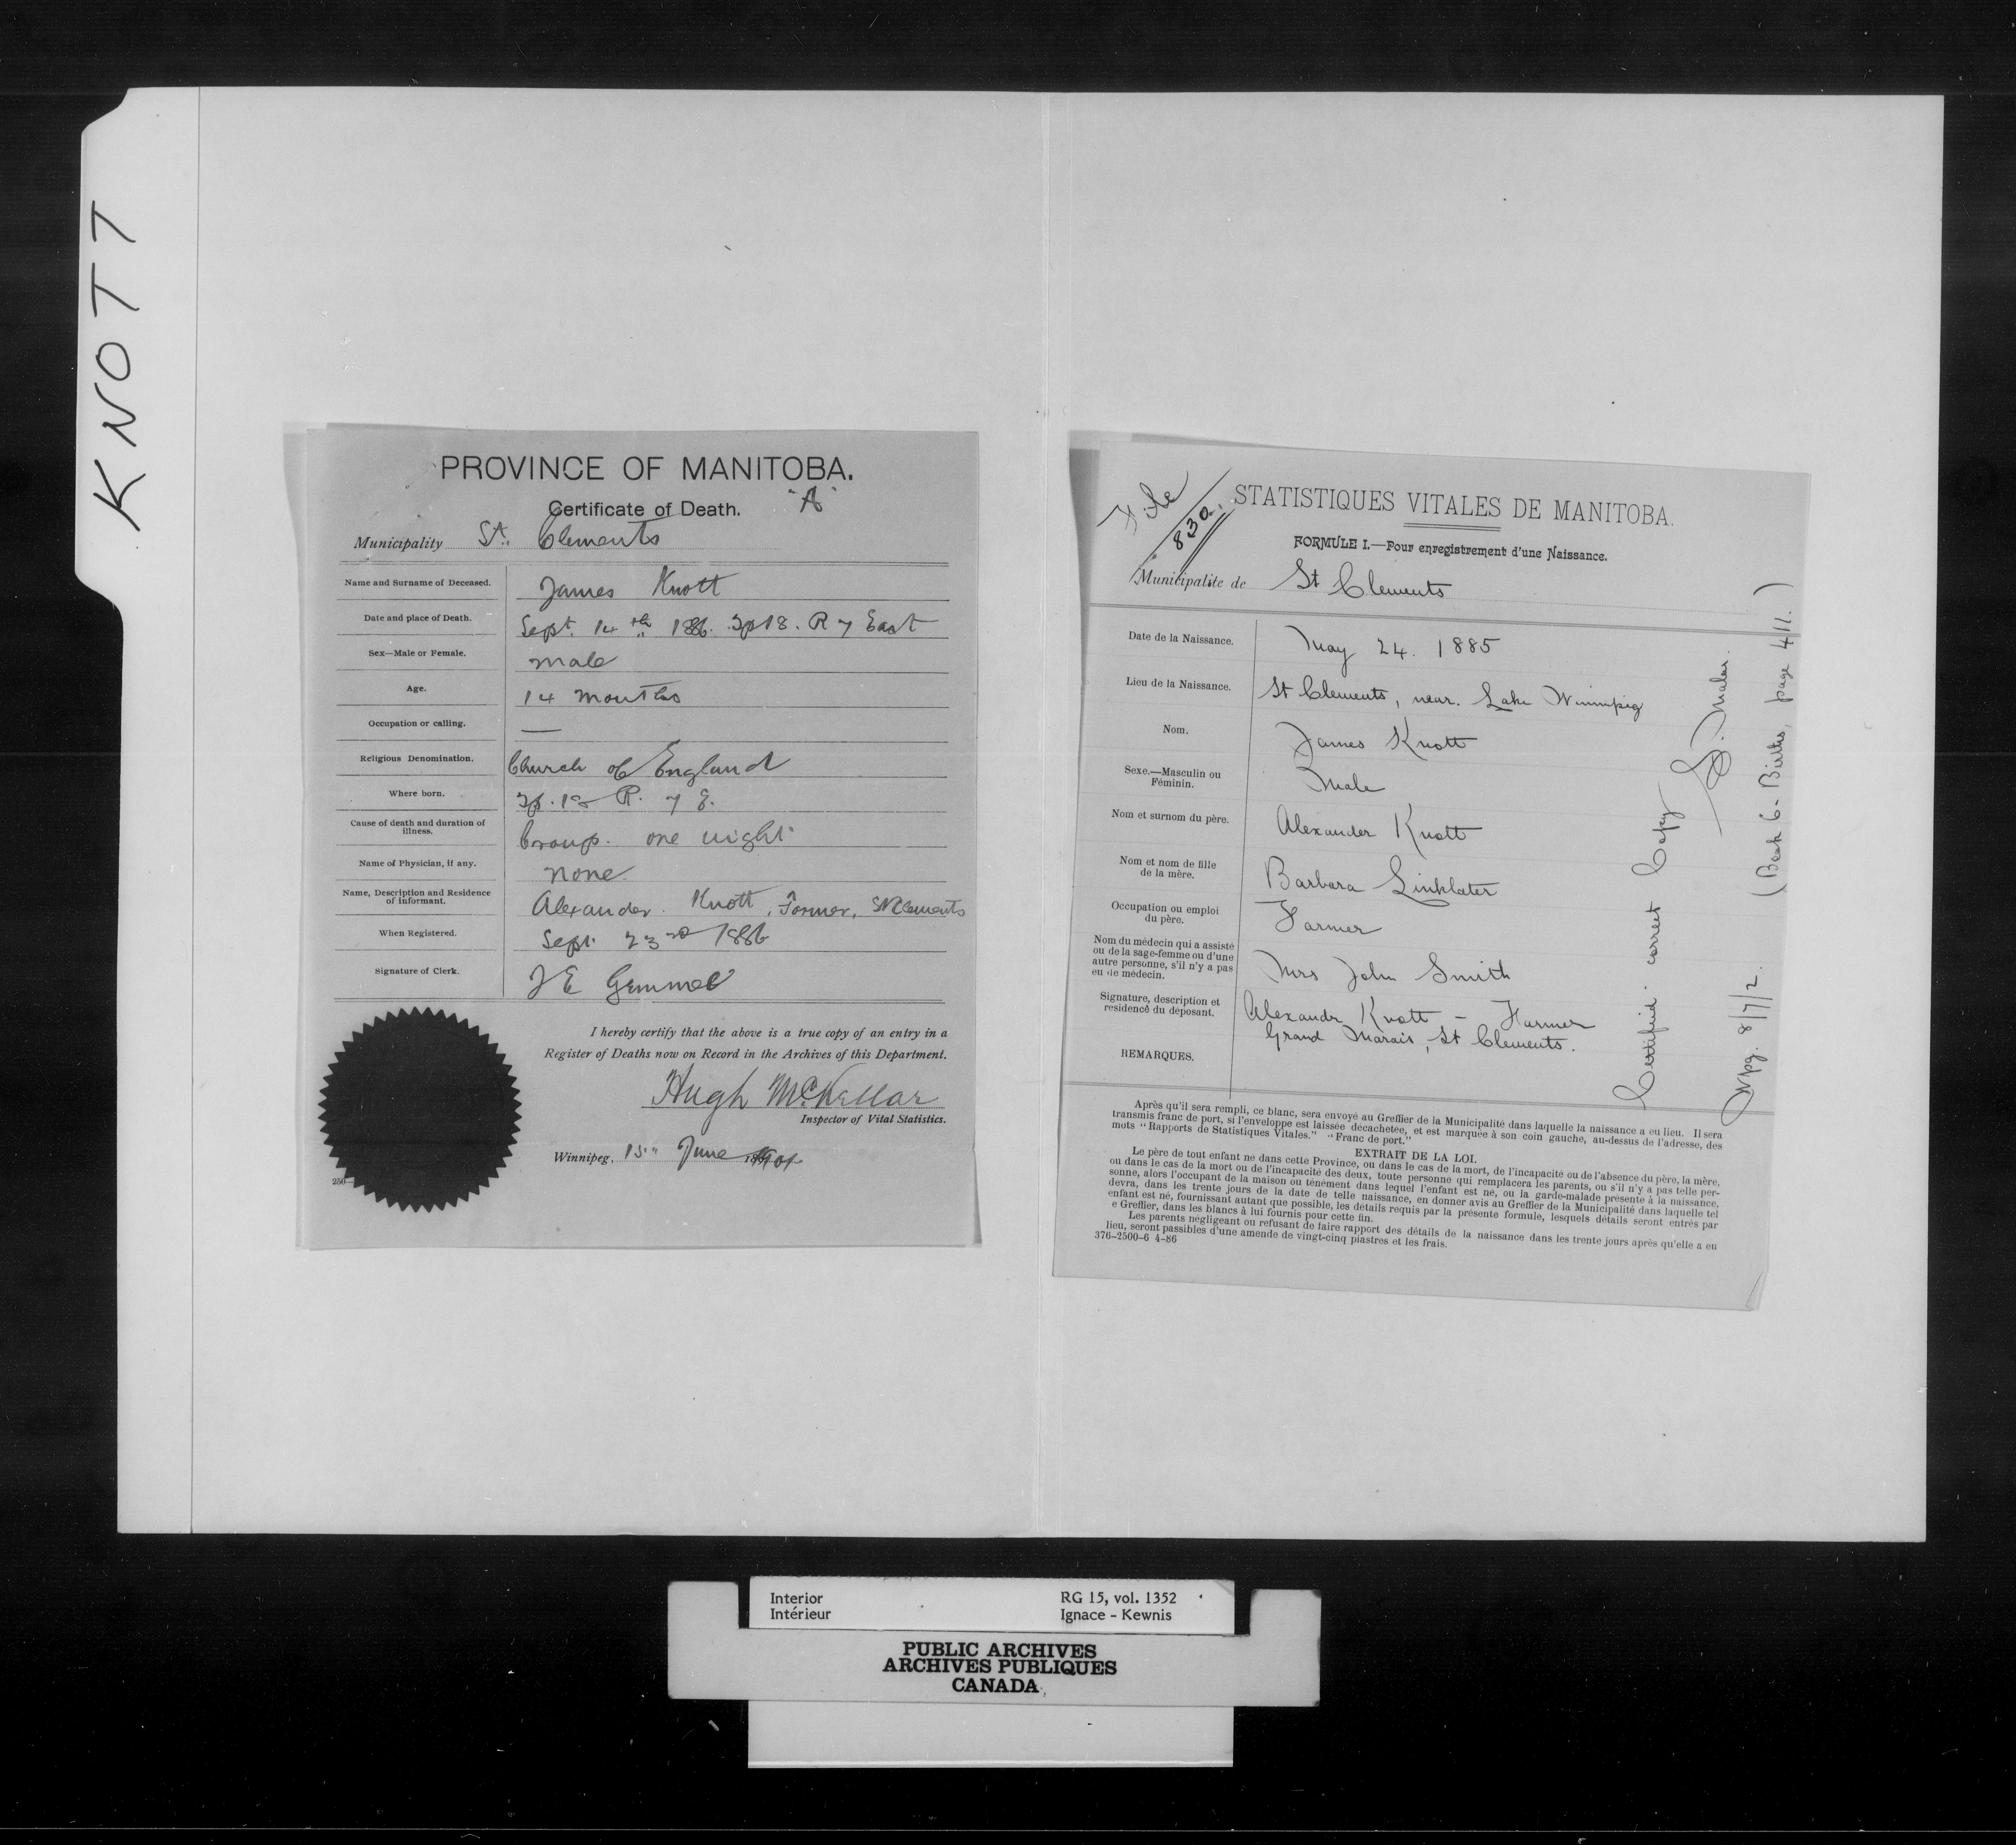 KNOTT
PROVINCE OF MANITOBA.
Certificate of Death. "A"
Municipality St. Clements
Name and Surname of Deceased. James Knott
Date and place of Death. Sept. 14th 1886. Tp 18. R 7 East
Sex—Male or Female. male
Age. 14 months
Occupation or calling. —
Religious Denomination. Church of England
Where born. Tp. 18 R. 7 E.
Cause of death and duration of
illness. Croup. one night
Name of Physician, if any. none
Name, Description and Residence
of informant. Alexander Knott, Farmer, St Clements
When Registered. Sept. 23rd 1886
Signature of Clerk. J E Gemmel
I hereby certify that the above is a true copy of an entry in a
Register of Deaths now on Record in the Archives of this Department.
Hugh McKellar
Inspector of Vital Statistics.
Winnipeg, 15" June 1901
250
File
830.
STATISTIQUES VITALES DE MANITOBA.
FORMULE I.—Pour enregistrement d'une Naissance.
Municipalite de St Clements
Date de la Naissance. May 24. 1885
Lieu de la Naissance. St Clements, near. Lake Winnipeg
Nom. James Knott
Sexe.—Masculin ou
Féminin. Male
Nom et surnom du père. Alexander Knott
Nom et nom de fille
de la mère. Barbara Linklater
Occupation ou emploi
du père. Farmer
Nom du médecin qui a assisté
ou de la sage-femme ou d'une
autre personne, s'il n'y a pas
eu de médecin. Mrs John Smith
Signature, description et
residence du déposant. Alexandr Knott – Farmer
Grand Marais, St Clements.
REMARQUES.
Certified correct Copy
Wpg. 8/7/2. (Book 6 - Births, page 411.)
Après qu'il sera rempli, ce blanc, sera envoyé au Greffier de la Municipalité dans laquelle la naissance a eu lieu. Il sera
transmis franc de port, si l'enveloppe est laissée décachetée, et est marquée à son coin gauche, au-dessus de l'adresse, des
mots "Rapports de Statistiques Vitales." "Franc de port."
EXTRAIT DE LA LOI.
Le père de tout enfant né dans cette Province, ou dans le cas de la mort, de l'incapacité ou de l'absence du père, la mère,
ou dans le cas de la mort ou de l'incapacité des deux, toute personne qui remplacera les parents, ou s'il n'y a pas telle per-
sonne, alors l'occupant de la maison ou ténément dans lequel l'enfant est né, ou la garde-malade présente à la naissance,
devra, dans les trente jours de la date de telle naissance, en donner avis au Greffier de la Municipalité dans laquelle tel
enfant est né, fournissant autant que possible, les détails requis par la présente formule, lesquels détails seront entrés par
e Greffier, dans les blancs à lui fournis pour cette fin.
Les parents négligeant ou refusant de faire rapport des détails de la naissance dans les trente jours après qu'elle a eu
lieu, seront passibles d'une amende de vingt-cinq piastres et les frais.
376–2500–6 4–86
Interior RG 15, vol. 1352
Intérieur Ignace - Kewnis
PUBLIC ARCHIVES
ARCHIVES PUBLIQUES
CANADA